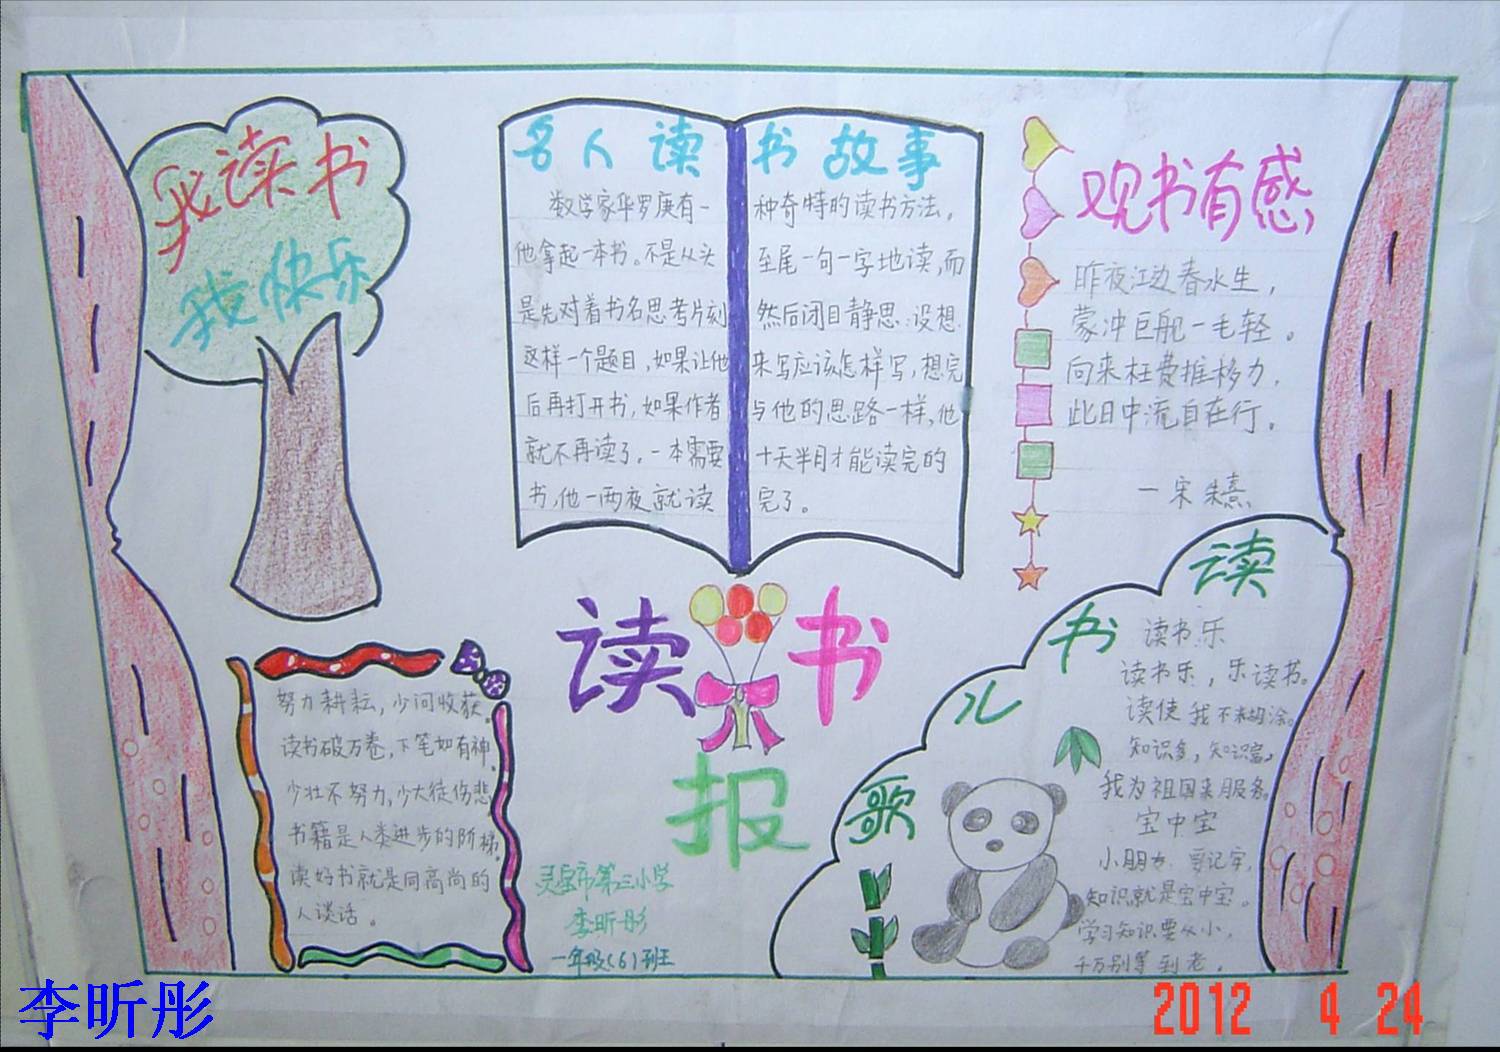 我读书
我快乐
名人读书故事
数学家华罗庚有一种奇特的读书方法，
他拿起一本书。不是从头至尾一句一字地读，而
是先对着书名思考片刻然后闭目静思：设想
这样一个题目，如果让他来写应该怎样写，想完
后再打开书，如果作者与他的思路一样，他
就不再读了。一本需要十天半月才能读完的
书，他一两夜就读完了。
观书有感
昨夜江边春水生，
蒙冲巨舰一毛轻。
向来枉费推移力，
此日中流自在行。
一宋 朱熹
读书报
努力耕耘，少问收获。
读书破万卷，下笔如有神。
少壮不努力，少大徒伤悲
书籍是人类进步的阶梯。
读好书就是同高尚的
人谈话。
灵宝市第三小学
李昕彤
一年级（6）班
读书儿歌
读书乐
读书乐，乐读书。
读使我不糊涂。
知识多，知识富，
我为祖国来服务。
宝中宝
小朋友 要记牢，
知识就是宝中宝。
学习知识要从小，
千万别等到老。
李昕彤
2012 4 24